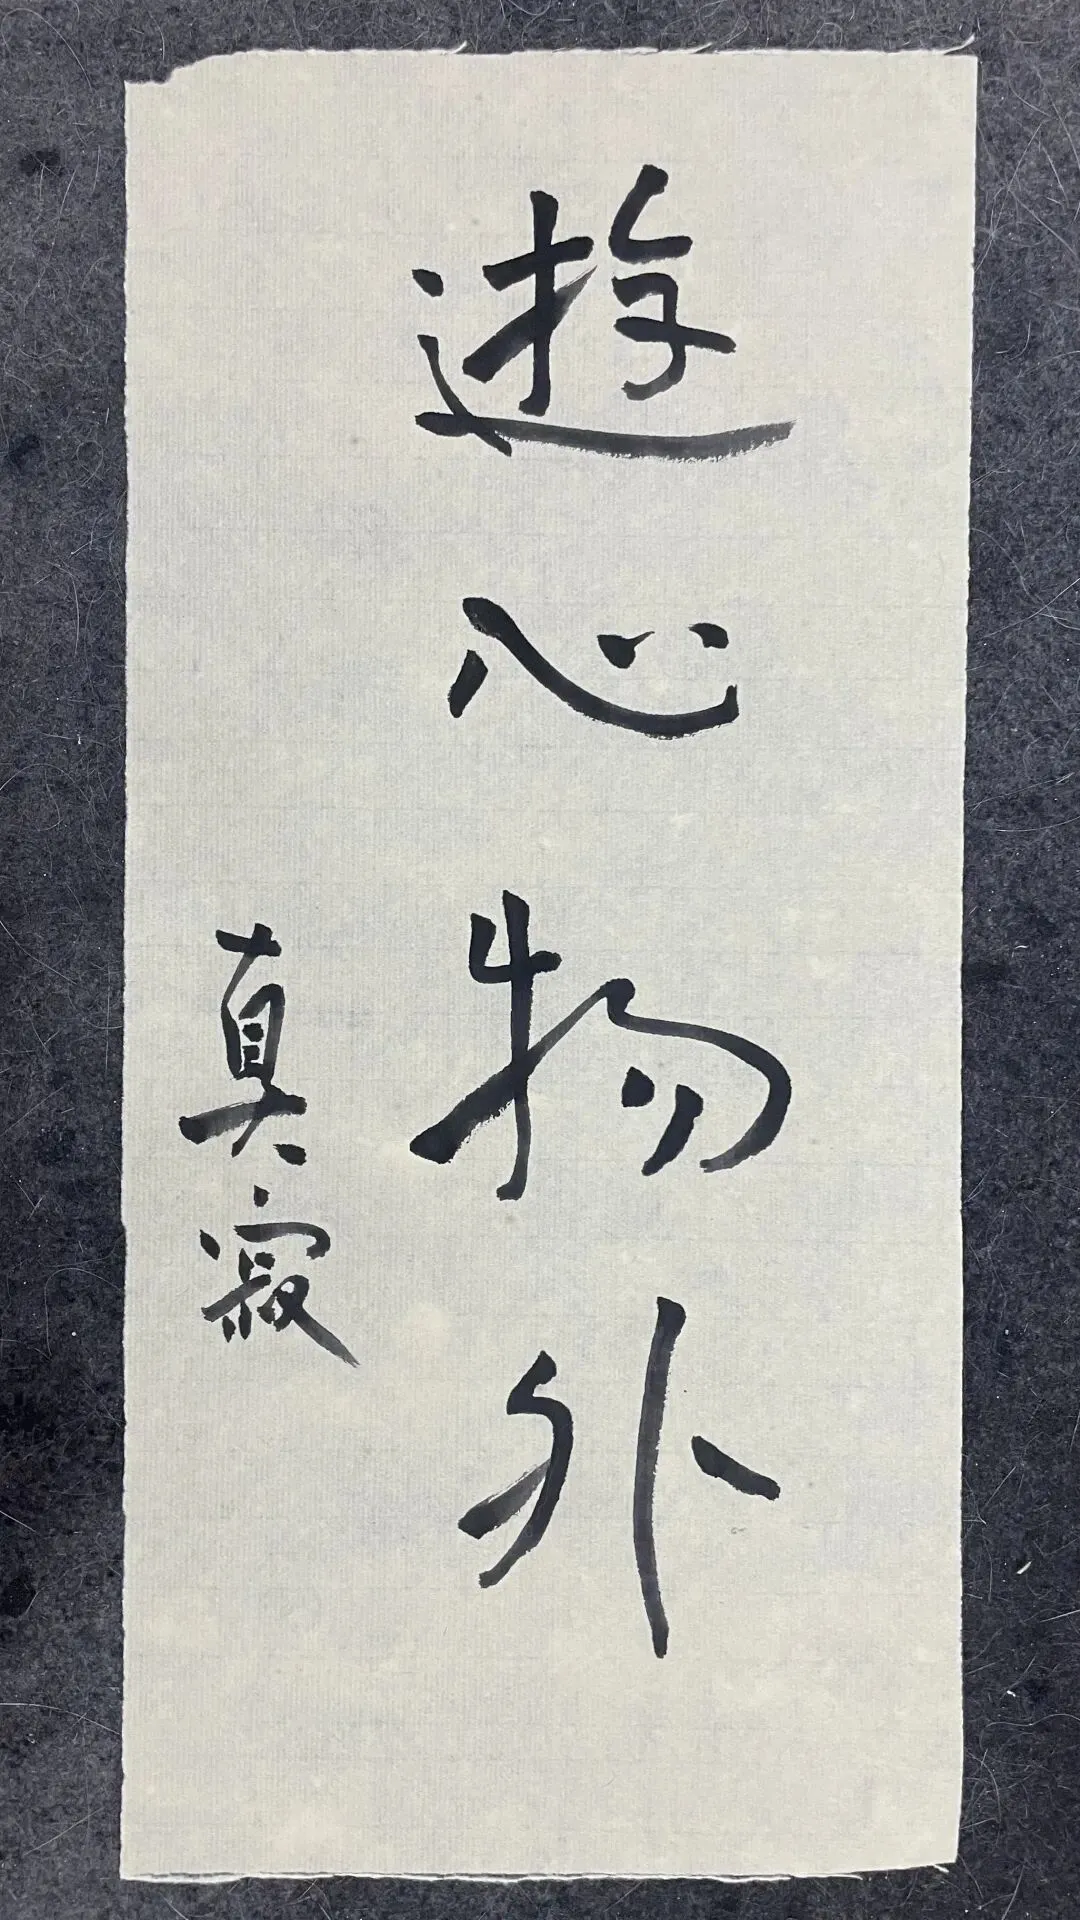 遊心物外
真寂